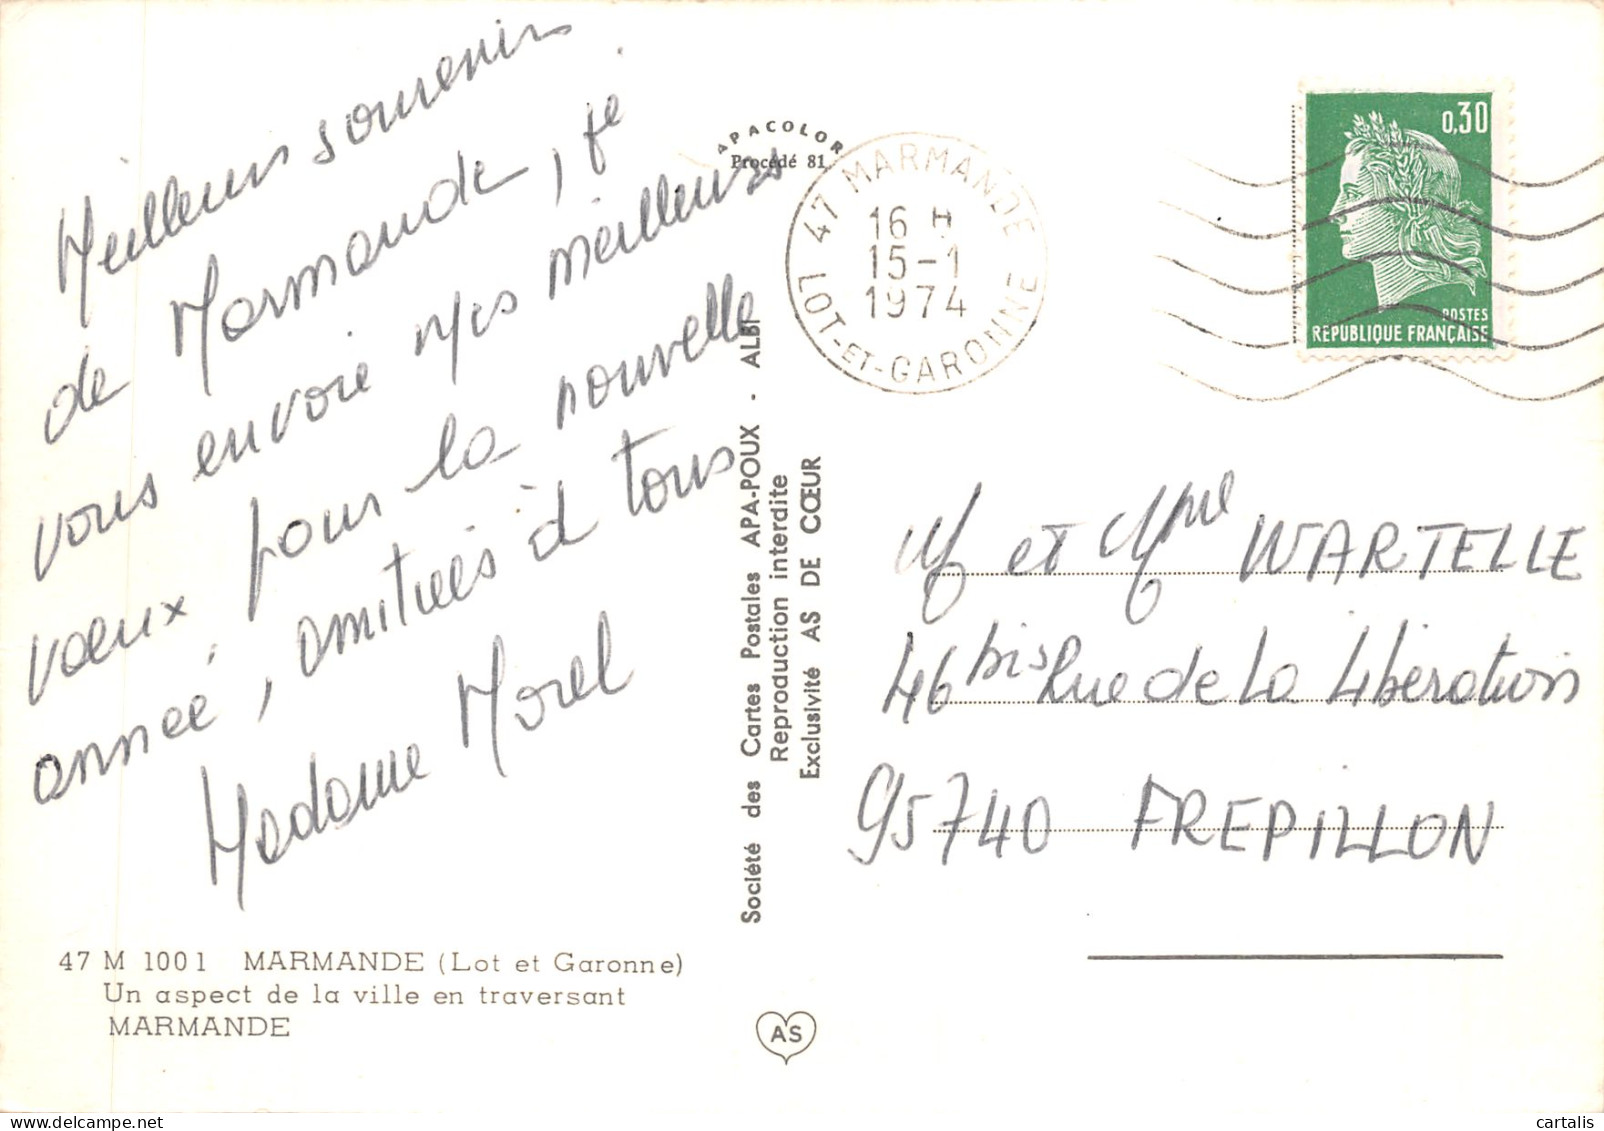 Meilleurs souvenirs
de Marmande, je
vous envoie mes meilleurs
vœux pour la nouvelle
année, amitiés à tous
Madame Morel
47 M 1001 MARMANDE (Lot et Garonne)
Un aspect de la ville en traversant
MARMANDE
APACOLOR
Procédé 81
Société des Cartes Postales APA-POUX - ALBI
Reproduction interdite
Exclusivité AS DE CŒUR
AS
47 MARMANDE
16 H
15-1
1974
LOT-ET-GARONNE
0,30
POSTES
REPUBLIQUE FRANÇAISE
M et Mme WARTELLE
46 bis Rue de La Libération
95740 FREPILLON
cartalis